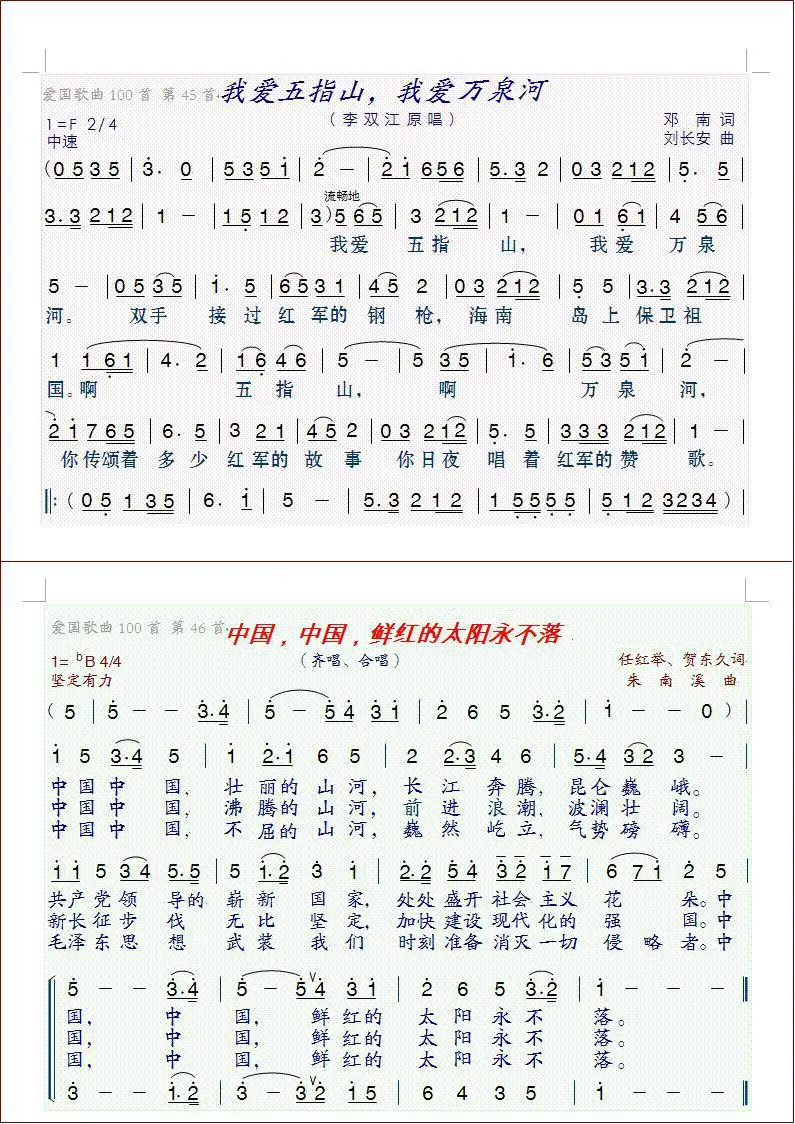 爱国歌曲100首 第45首 我爱五指山，我爱万泉河
（李双江原唱）
1=F 2/4 邓 南 词
中速 刘长安 曲
(0 5 3 5 | 3. 0 | 5 3 5 1 | 2 — | 2 1 6 5 6 | 5. 3 2 | 0 3 2 1 2 | 5. 5 |
流畅地
3. 3 2 1 2 | 1 — | 1 5 1 2 | 3) 5 6 5 | 3 2 1 2 | 1 — | 0 1 6 1 | 4 5 6 |
我爱 五指 山， 我爱 万泉
5 — | 0 5 3 5 | 1. 5 | 6 5 3 1 | 4 5 2 | 0 3 2 1 2 | 5 5 | 3. 3 2 1 2 |
河。 双手 接过红军的钢枪，海南 岛上保卫祖
1 1 6 1 | 4. 2 | 1 6 4 6 | 5 — | 5 3 5 | 1. 6 | 5 3 5 1 | 2 —
国。啊 五指 山， 啊 万泉 河，
2 1 7 6 5 | 6. 5 | 3 2 1 | 4 5 2 | 0 3 2 1 2 | 5. 5 | 3 3 3 2 1 2 | 1 —
你传颂着 多少红军的故事 你日夜 唱着红军的赞 歌。
‖: (0 5 1 3 5 | 6. 1 | 5 — | 5. 3 2 1 2 | 1 5 5 5 5 | 5 1 1 2 3 2 3 4 ) |
爱国歌曲100首 第46首 中国，中国，鲜红的太阳永不落
1= bB 4/4 （齐唱、合唱） 任红举、贺东久词
坚定有力 朱 南 溪 曲
(5 | 5 — — 3. 4 | 5 — 5 4 3 1 | 2 6 5 3. 2 | 1 — — 0 ) |
1 5 3. 4 5 | 1 2. 1 6 5 | 2 2. 3 4 6 | 5. 4 3 2 3 — |
中国中 国，壮丽的山河，长江奔腾，昆仑巍 峨。
中国中 国，沸腾的山河，前进浪潮，波澜壮 阔。
中国中 国，不屈的山河，巍然屹立，气势磅 礴。
1 1 5 3 4 5. 5 | 5 1. 2 3 1 | 2. 2 5 4 3 2 1 7 | 6 7 1 2 5 |
共产党领 导的崭新国家，处处盛开社会主义花 朵。中
新长征步 伐 无比坚定，加快建设现代化的强 国。中
毛泽东思 想 武装我们 时刻准备消灭一切侵 略者。中
5 — — 3. 4 | 5 — 5 4 3 1 | 2 6 5 3. 2 | 1 — — — ‖
国， 中 国， 鲜红的太阳永不 落。
国， 中 国， 鲜红的太阳永不 落。
国， 中 国， 鲜红的太阳永不 落。
3 — — 1. 2 | 3 — 3 2 1 5 | 6 4 3 5 | 1 — — — ‖